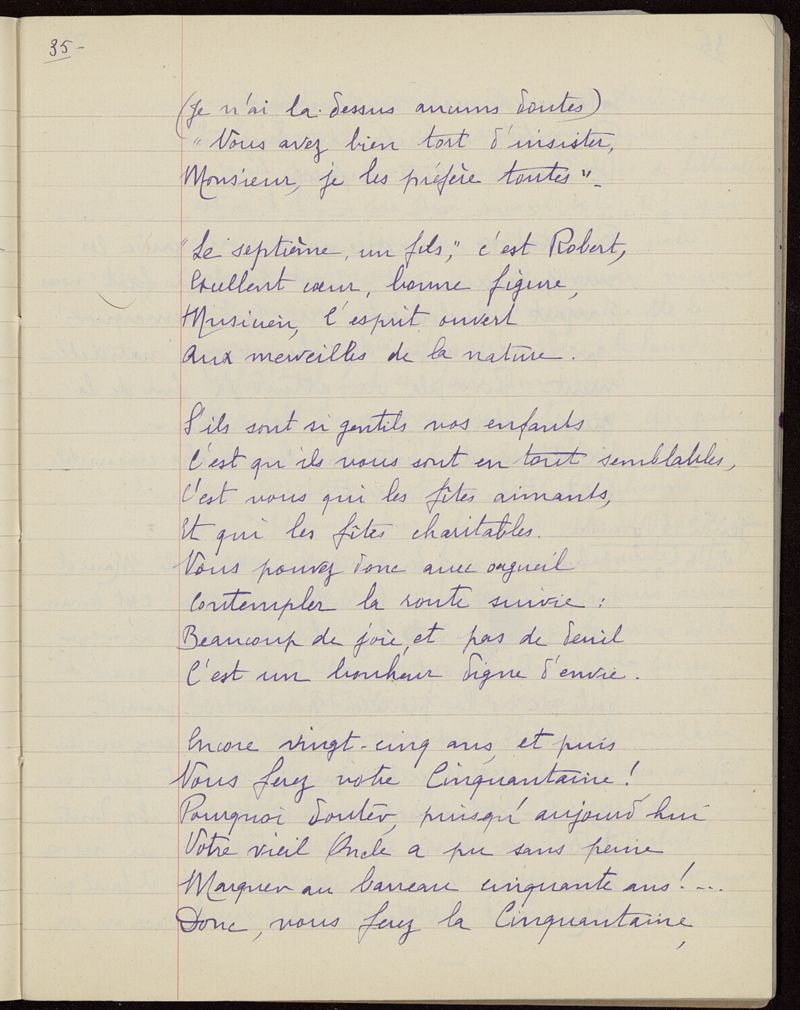 35-
(Je n'ai la-dessus aucuns doutes)
"Vous avez bien tort d'insister,
Monsieur, je les préfère toutes"-
"Le septième, un fils," c'est Robert,
Excellent cœur, bonne figure,
Musicien, l'esprit ouvert
Aux merveilles de la nature.
S'ils sont si gentils vos enfants
C'est qu'ils vous sont en tout semblables,
C'est vous qui les fîtes aimants,
Et qui les fîtes charitables.
Vous pouvez donc avec orgueil
Contempler la route suivie :
Beaucoup de joie, et pas de deuil
C'est un bonheur digne d'envie.
Encore vingt-cinq ans, et puis
Vous ferez votre Cinquantaine !
Pourquoi douter, puisqu'aujourd'hui
Votre vieil Oncle a pu sans peine
Marquer au barreau cinquante ans !...
Donc, vous ferez la Cinquantaine,